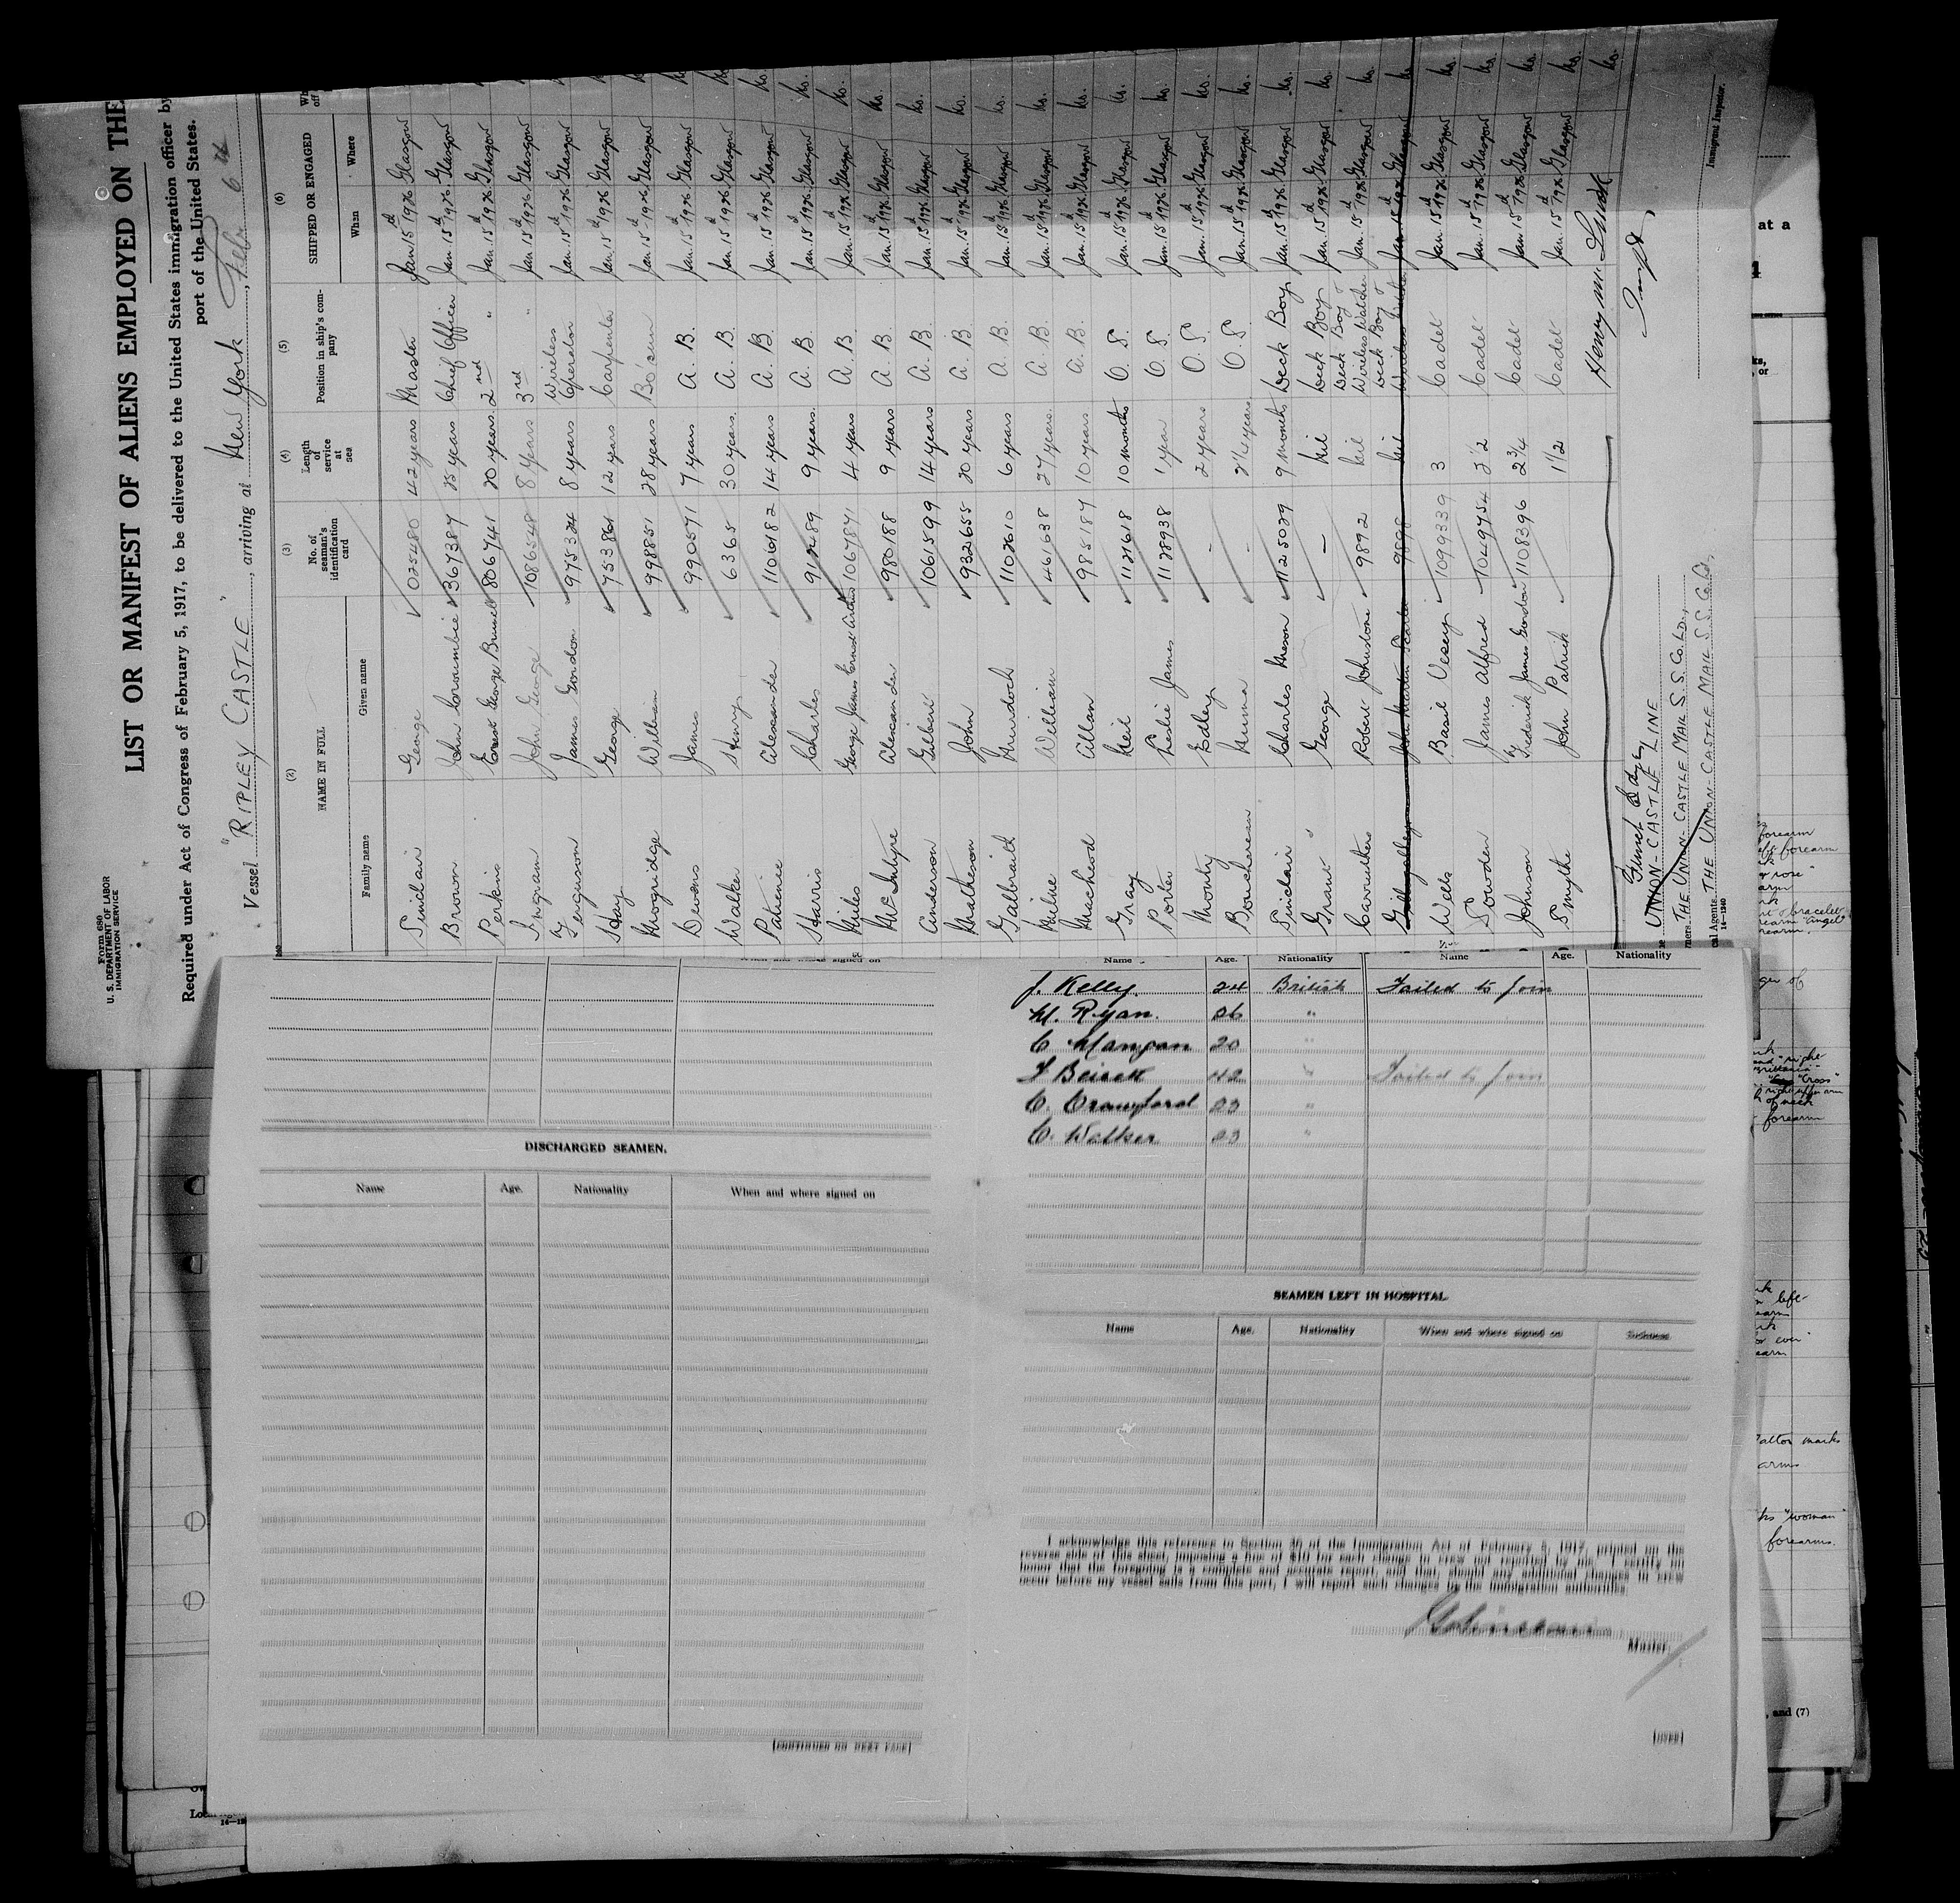 Form 680
U. S. DEPARTMENT OF LABOR
IMMIGRATION SERVICE
LIST OR MANIFEST OF ALIENS EMPLOYED ON THE
Required under Act of Congress of February 5, 1917, to be delivered to the United States immigration officer by
port of the United States.
Vessel "RIPLEY CASTLE", arriving at New York, Feby 6th
(2) (3) (4) (5) (6)
NAME IN FULL No. of seaman's identification card Length of service at sea Position in ship's company SHIPPED OR ENGAGED
Family name Given name When Where
Sinclair George 025480 42 years Master Jan 15th 1926 Glasgow
Brown John Crombie 367387 25 years Chief Officer Jan. 15th 1926. Glasgow No.
Perkins Ernest George Brunel 806741 20 years. 2nd " Jan. 15th 1926 Glasgow
Ingram John George 1086548 8 Years 3rd " Jan. 15th 1926. Glasgow
Ferguson James Gordon 975324 8 years Wireless Operator Jan. 15th 1926 Glasgow
Hay George 753861 12 years Carpenter Jan. 15th 1926 Glasgow
Mogridge William 998851 28 years Bo'sun Jan. 15th 1926 Glasgow
Devens James 990571 7 years A. B. Jan. 15th 1926 Glasgow No.
Walker Henry 6365 30 years. A. B. Jan. 15th 1926 Glasgow No.
Patience Alexander 1106182 14 years A. B. Jan. 15th 1926 Glasgow No.
Harris Charles 912489 9 years. A. B. Jan. 15th 1926 Glasgow No.
Miles George James Ernest Arthur 1067871 4 years A. B. Jan. 15th 1926 Glasgow No.
McIntyre Alexander 980188 9 years A. B. Jan. 15th 1926 Glasgow No.
Anderson Gilbert 1061599 14 years A. B. Jan. 15th 1926 Glasgow No.
Matheson John 932655 20 years A. B. Jan. 15th 1926 Glasgow No.
Galbraith Murdoch 1102610 6 years A. B. Jan. 15th 1926 Glasgow No.
Milne William 461638 27 years A. B. Jan. 15th 1926 Glasgow No.
Macleod Allan 985187 10 years A. B. Jan. 15th 1926 Glasgow No.
Gray Neil 1121618 10 months O. S. Jan. 15th 1926 Glasgow No.
Porter Leslie James 1128938 1 year O. S. Jan. 15th 1926 Glasgow No.
Monty Edley - 2 years O. S. Jan. 15th 1926 Glasgow No.
Bonsharean Numa - 2¼ years O. S. Jan. 15th 1926 Glasgow No.
Sinclair Charles Meson 1125029 9 months Deck Boy Jan. 15th 1926 Glasgow No.
Grant George - Nil Deck Boy Jan. 15th 1926 Glasgow No.
Carruthers Robert Johnstone 9892 Nil Deck Boy & Wireless Watcher Jan. 15th 1926 Glasgow No.
John Martin 9898 Nil Deck Boy & Wireless Jan. 15th 1926 Glasgow No
Wells Basil Vesey 1099339 3 Cadet Jan. 15th 1926 Glasgow No.
Sowden James Alfred 1049754 2½ Cadet Jan. 15th 1926 Glasgow No.
Johnson Frederick James Gordon 1108396 2¾ Cadet Jan 15th 1926 Glasgow No.
Smythe John Patrick 1½ Cadet Jan. 15th 1926 Glasgow No.
Henry M.
Insp.
Immigrant Inspector.
Funch Edye
UNION-CASTLE LINE
THE UNION-CASTLE MAIL S.S. Co. LD.,
cal Agents. THE UNION CASTLE MAIL S.S. Co Ld.
14-1240
When and where signed on
Name Age. Nationality Name Age. Nationality
J. Kelly. 24 British Failed to join
M. Ryan. 26 "
C Mangan 20 "
42 " Failed to join
C. Crawford 23 "
C. Walker 23 "
DISCHARGED SEAMEN.
Name Age. Nationality When and where signed on
SEAMEN LEFT IN HOSPITAL.
Name Age. Nationality When and where signed on Sickness
I acknowledge this reference to Section 36 of the Immigration Act of February 5, 1917, printed on the
reverse side of this sheet, imposing a fine of $10 for each change in crew not reported by me. I certify on
honor that the foregoing is a complete and accurate report, and that, should any additional changes in crew
occur before my vessel sails from this port, I will report such changes to the immigration authorities.
Master.
[CONTINUED ON NEXT PAGE]
[OVER]
at a
forearm
forearm
rose"
arm
bracelet
"angel"
forearm.
"Cross"
forearm
left
marks
arms
"woman"
forearms.
, and (7)